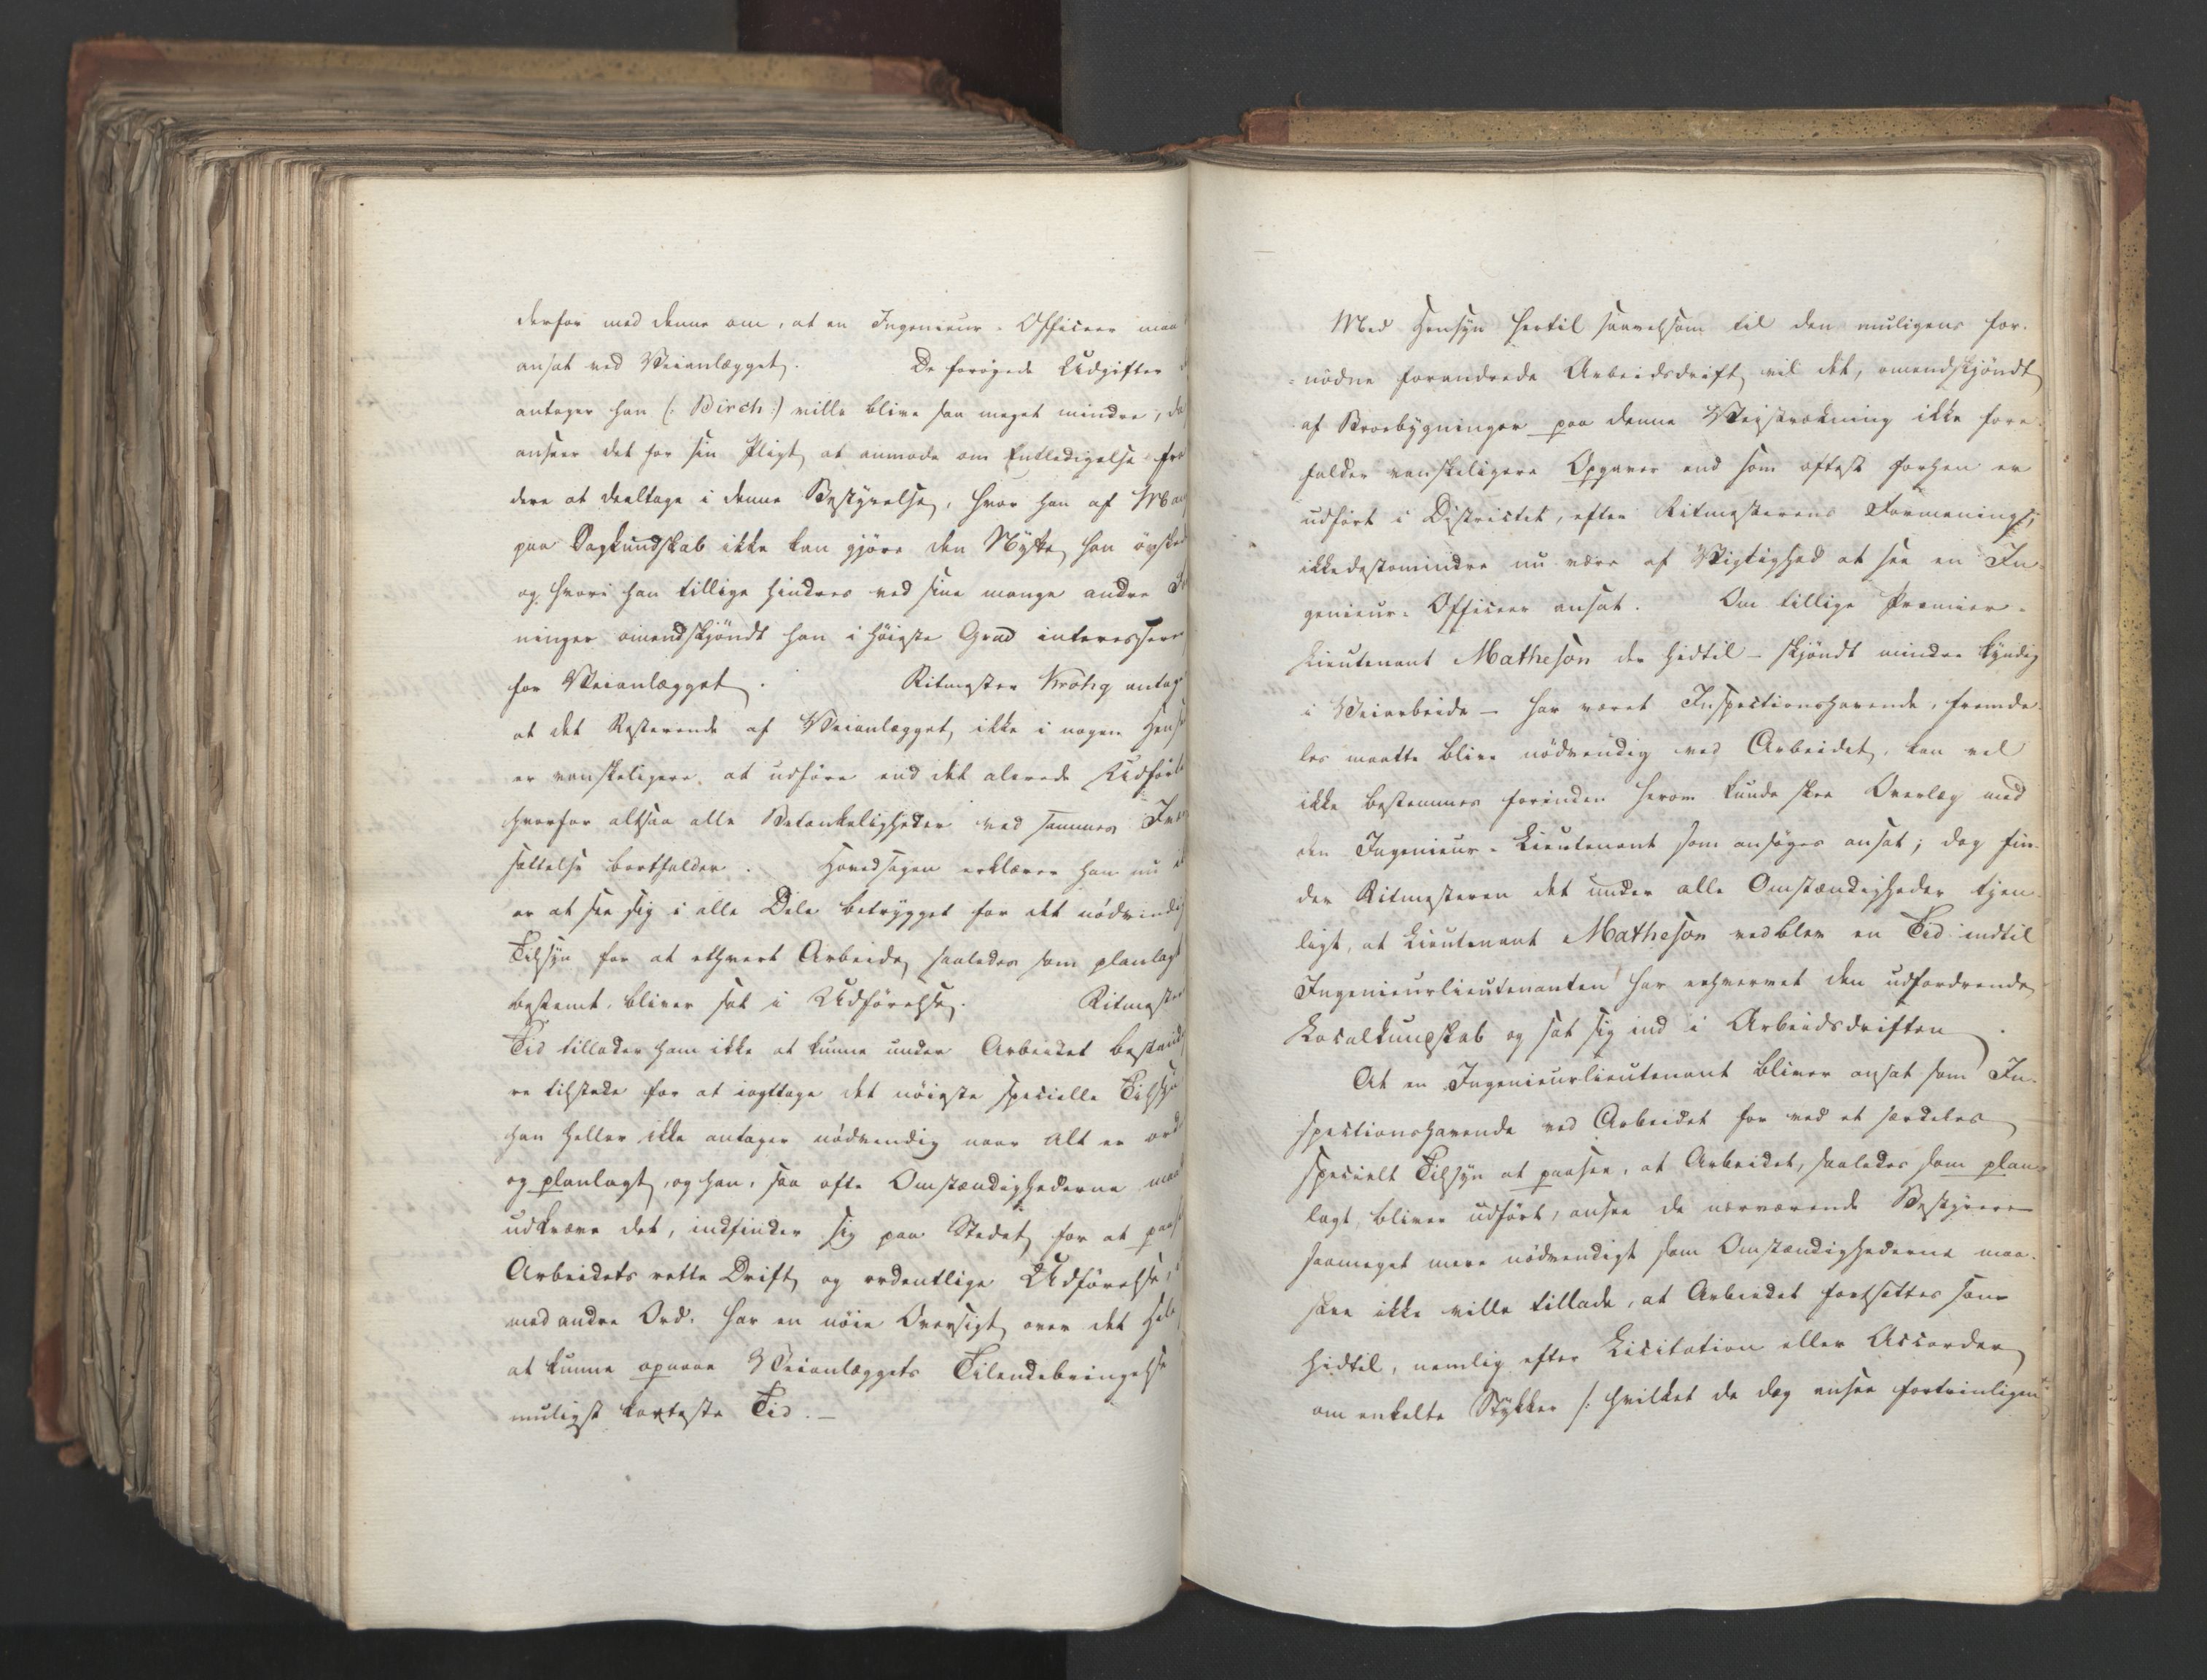 derfor med denne om, at en Ingenieur-Officeer maa
ansat ved Veianlægget. De forøgede Udgifter
antager han (: Birch :) ville blive saa meget mindre, da
anseer det for sin Pligt at anmode om Entledigelse fra
dere at deeltage i denne Bestyrelse, hvor han af Man
paa Sagkundskab ikke kan gjøre den Nytte, han ønsked
og hvori han tillige hindres ved sine mange andre
ninger omendskjøndt han i høieste Grad interessere
for Veianlægget. Ritmester Krohg antag
at det Resterende af Veianlægget, ikke i nogen Hens
er vanskeligere at udføre end det alerede Udført
hvorfor altsaa alle Betænkeligheder ved sammes
sættelse bortfalder. Hovedsagen erklærer han nu at
er at see sig i alle Dele betrygget for det nødvendig
Tilsyn for at ethvert Arbeide, saaledes som planlagt
bestemt, bliver sat i Udførelse. Ritmester
Tid tillader ham ikke at kunne under Arbeidet bestand
re tilstede for at iagttage det nøieste specielle Tilsyn
han heller ikke antager nødvendig naar Alt er ord
og planlagt, og han, saa ofte Omstændighederne maat
udkræve det, indfinder sig paa Stedet for at paase
Arbeidets rette Drift og ordentlige Udførelse,
med andre Ord: har en nøie Oversigt over det Hele
at kunne opnaae Veianlæggets Tilendebringelse
muligst korteste Tid. —
Med Hensyn hertil saavelsom til den muligens for-
nødne forandrede Arbeidsdrift vil det, omendskjøndt
af Broebygninger paa denne Veistrækning ikke fore-
falder vanskeligere Opgaver end som oftest forhen er
udført i Districtet, efter Ritmesterens Formening,
ikkedestomindre nu være af Vigtighed at see en In-
genieur-Officeer ansat. Om tillige Premier-
Lieutenant Matheson der hidtil – skjøndt mindre kyndig
i Veiarbeide – har været Inspectionshavende, fremde-
les maatte blive nødvendig ved Arbeidet, kan vel
ikke bestemmes forinden herom kunde skee Overlæg med
den Ingenieur-Lieutenant som ansøges ansat; dog fin-
der Ritmesteren det under alle Omstændigheder tjen-
ligt, at Lieutenant Matheson vedblev en Tid indtil
Ingenieurlieutenanten har erhvervet den udfordrende
Localkundskab og sat sig ind i Arbeidsdriften.
At en Ingenieurlieutenant bliver ansat som In-
spectionshavende ved Arbeidet for ved et særdeles
specielt Tilsyn at paasee, at Arbeidet, saaledes som plan-
lagt, bliver udført, ansee de nærværende Bestyrere
saameget mere nødvendigt som Omstændighederne maa-
skee ikke ville tillade, at Arbeidet fortsættes som
hidtil, nemlig efter Licitation eller Accorder
om enkelte Stykker /: hvilket de dog ansee fortrinligen